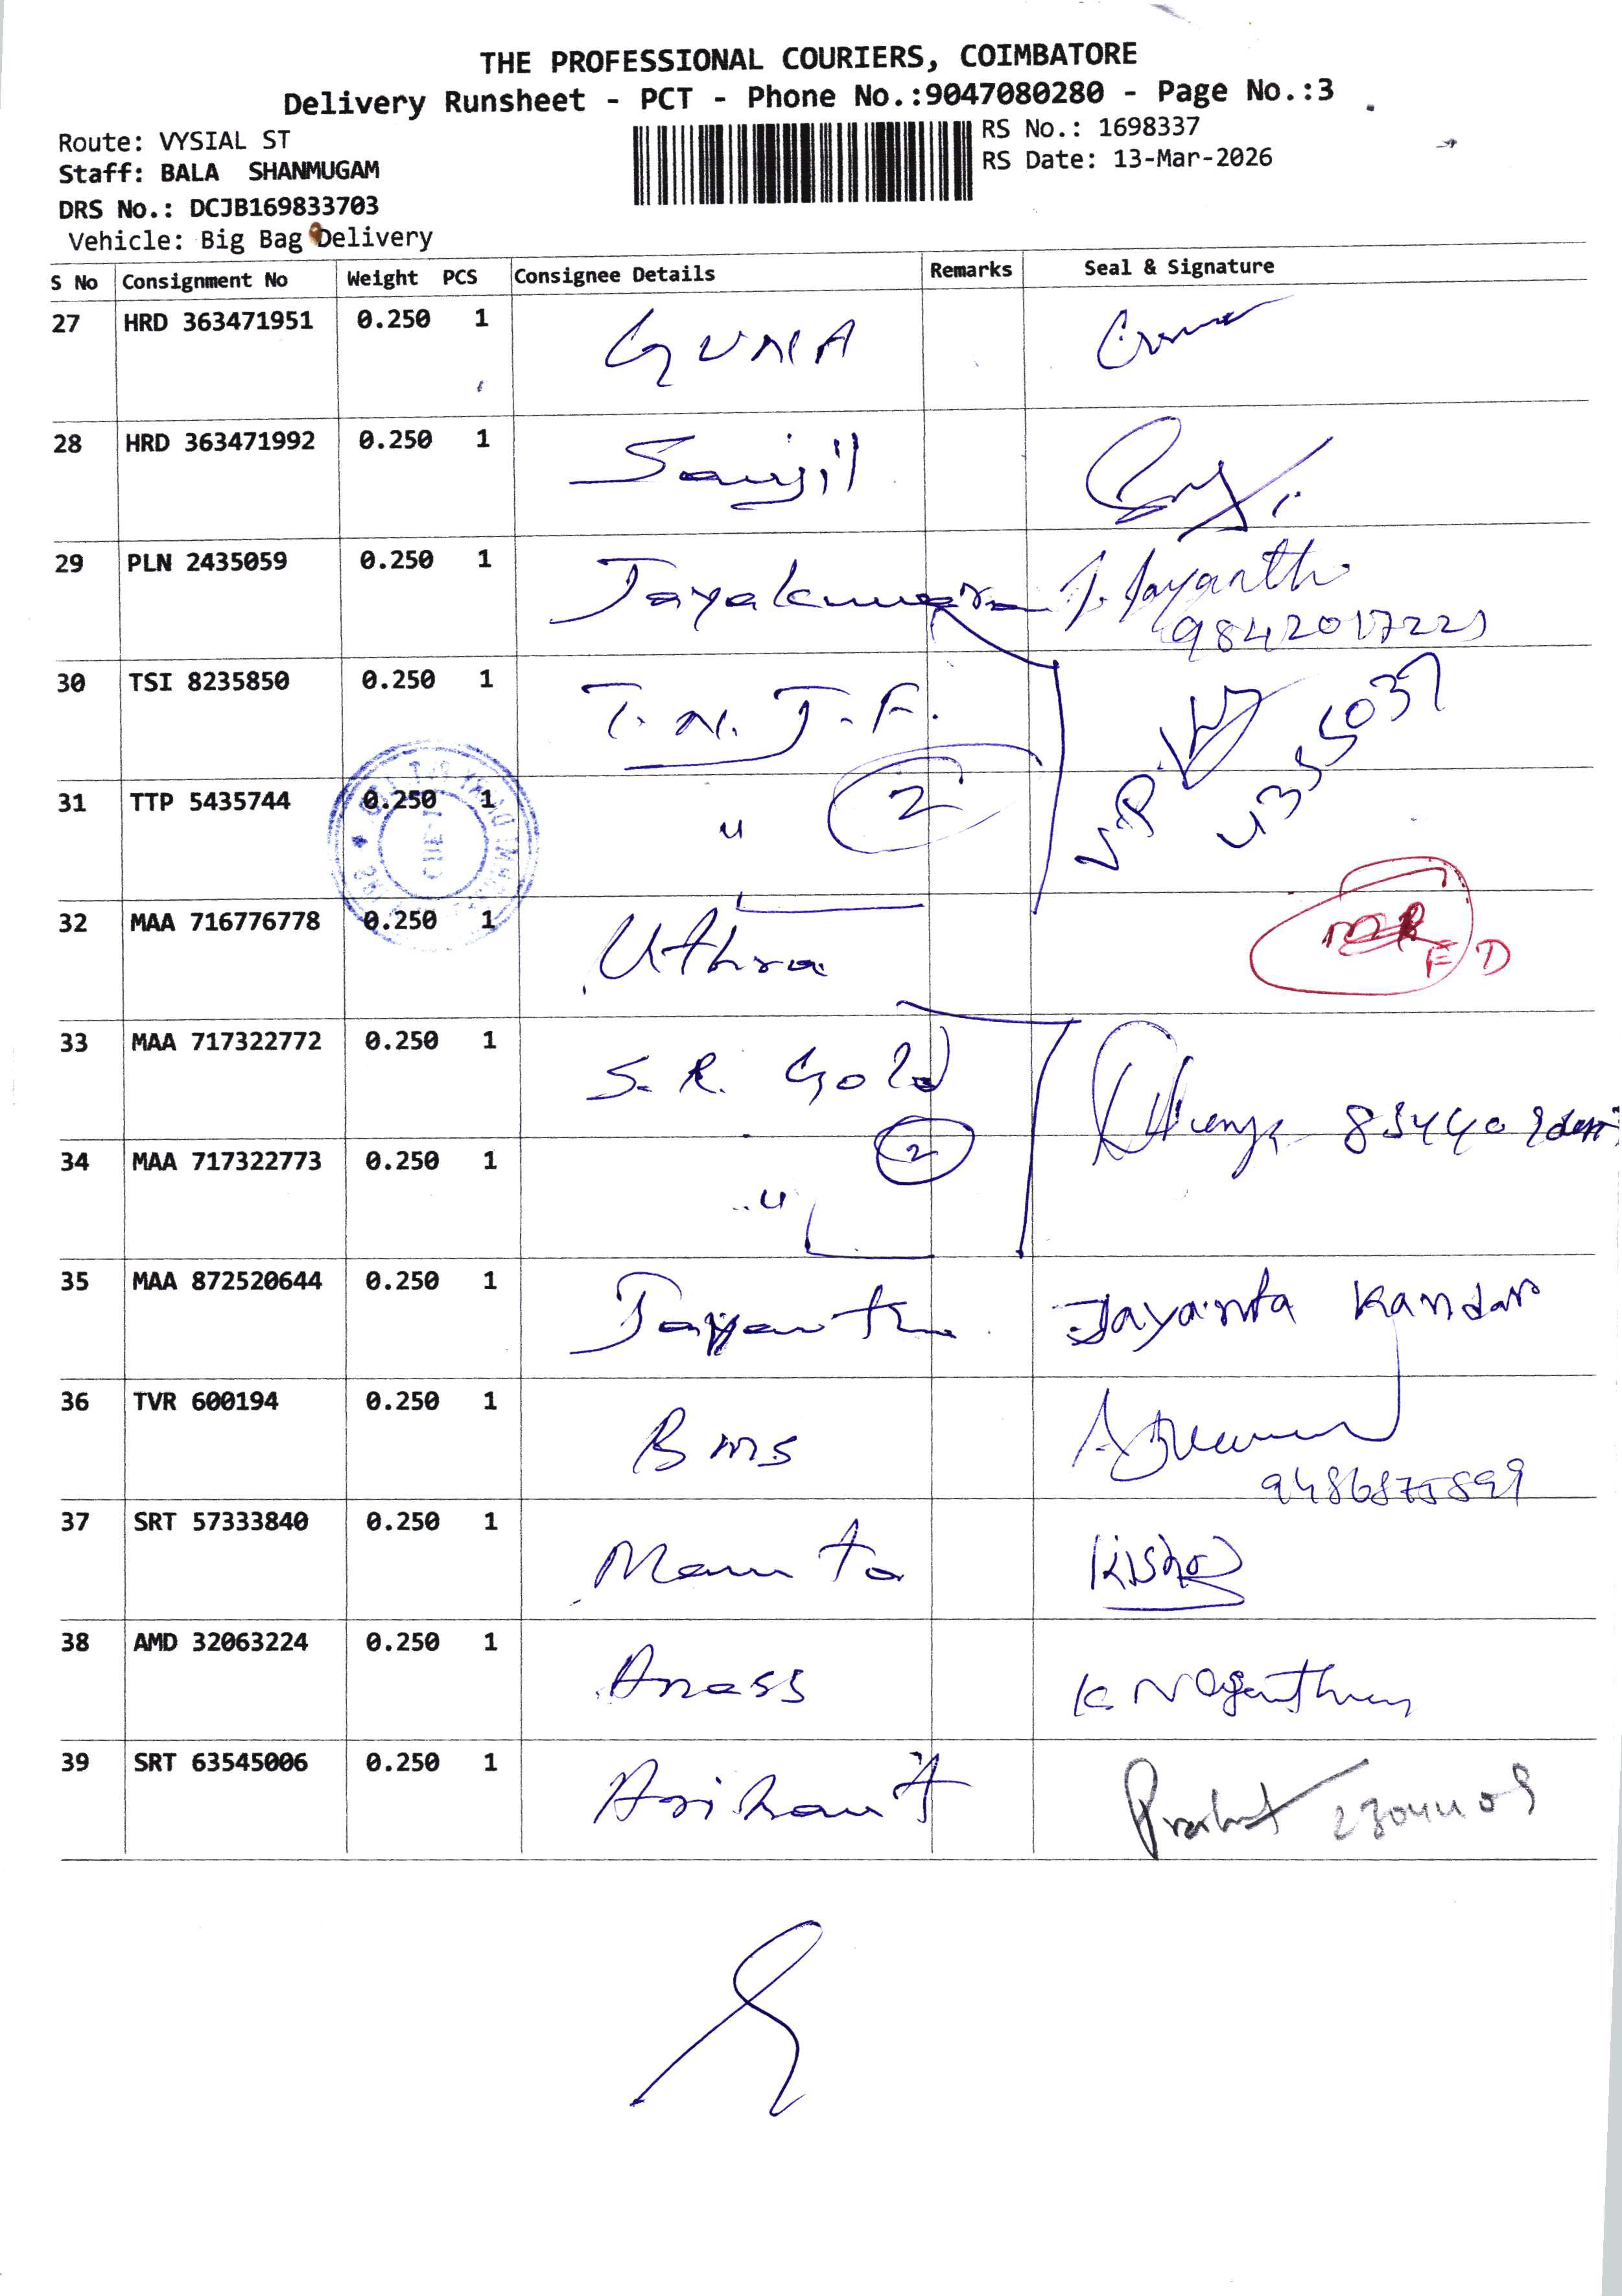 THE PROFESSIONAL COURIERS, COIMBATORE
Delivery Runsheet - PCT - Phone No.:9047080280 - Page No.:3
Route: VYSIAL ST
RS No.: 1698337
Staff: BALA SHANMUGAM
RS Date: 13-Mar-2026
DRS No.: DCJB169833703
Vehicle: Big Bag Delivery
S No Consignment No Weight PCS Consignee Details Remarks Seal & Signature
27 HRD 363471951 0.250 1 GUNA
28 HRD 363471992 0.250 1
29 PLN 2435059 0.250 1 Jayakumar J. Jayanth
30 TSI 8235850 0.250 1 T.N.J.F.
31 TTP 5435744 0.250 1 " 2
32 MAA 716776778 0.250 1 Uthra
F D
33 MAA 717322772 0.250 1 S.R. Gold
34 MAA 717322773 0.250 1 " 2
35 MAA 872520644 0.250 1 Jayanth Jayanta Kandar
36 TVR 600194 0.250 1 BMS
9486875899
37 SRT 57333840 0.250 1 Mamta Kishor
38 AMD 32063224 0.250 1
39 SRT 63545006 0.250 1 Arihant